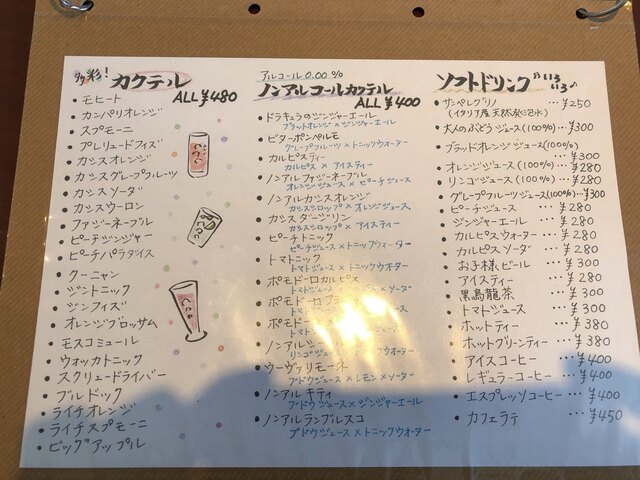 多彩! カクテル
ALL ¥480
・モヒート
・カンパリオレンジ
・スプモーニ
・プレリュードフィズ
・カシスオレンジ
・カシスグレープフルーツ
・カシスソーダ
・カシスウーロン
・ファジーネーブル
・ピーチジンジャー
・ピーチパラダイス
・クーニャン
・ジントニック
・ジンフィズ
・オレンジブロッサム
・モスコミュール
・ウォッカトニック
・スクリュードライバー
・ブルドック
・ライチオレンジ
・ライチスプモーニ
・ビッグアップル
アルコール 0.00%
ノンアルコールカクテル
ALL ¥400
・ドラキュラのジンジャーエール
ブラッドオレンジ×ジンジャーエール
・ビターボンペルモ
グレープフルーツ×トニックウォーター
・カルピスティー
カルピス×アイスティー
・ノンアルファジーネーブル
オレンジジュース×ピーチジュース
・ノンアルカシスオレンジ
カシスシロップ×オレンジジュース
・カシスダージリン
カシスシロップ×アイスティー
・ピーチトニック
ピーチジュース×トニックウォーター
・トマトニック
トマトジュース×トニックウォーター
・ポモドーロカルピス
トマトジュース
ソーダ
・ポモドーロ
トマト
・ポモド
トマト
・ノンアル
リンゴジュース
ウォーター
・ウーヴァリモーネ
ブドウジュース×レモン×ソーダ
・ノンアル キティ
ブドウジュース×ジンジャーエール
・ノンアルランブルスコ
ブドウジュース×トニックウォーター
ソフトドリンク♬いろいろ♪
・サンペレグリノ ・・・¥250
(イタリア産 天然炭酸水)
・大人のぶどうジュース(100%)・・・¥300
・ブラッドオレンジジュース(100%)
・・・¥300
・オレンジジュース(100%)・・・¥280
・リンゴジュース(100%)・・・¥280
・グレープフルーツジュース(100%)・・・¥300
・ピーチジュース ・・・¥280
・ジンジャーエール ・・・¥280
・カルピスウォーター ・・・¥280
・カルピスソーダ ・・・¥280
・お子様ビール ・・・¥300
・アイスティー ・・・¥280
・黒烏龍茶 ・・・¥300
・トマトジュース ・・・¥300
・ホットティー ・・・¥380
・ホットグリーンティー ・・・¥380
・アイスコーヒー ・・・¥400
・レギュラーコーヒー ・・・¥400
・エスプレッソコーヒー ・・・¥400
・カフェラテ ・・・¥450